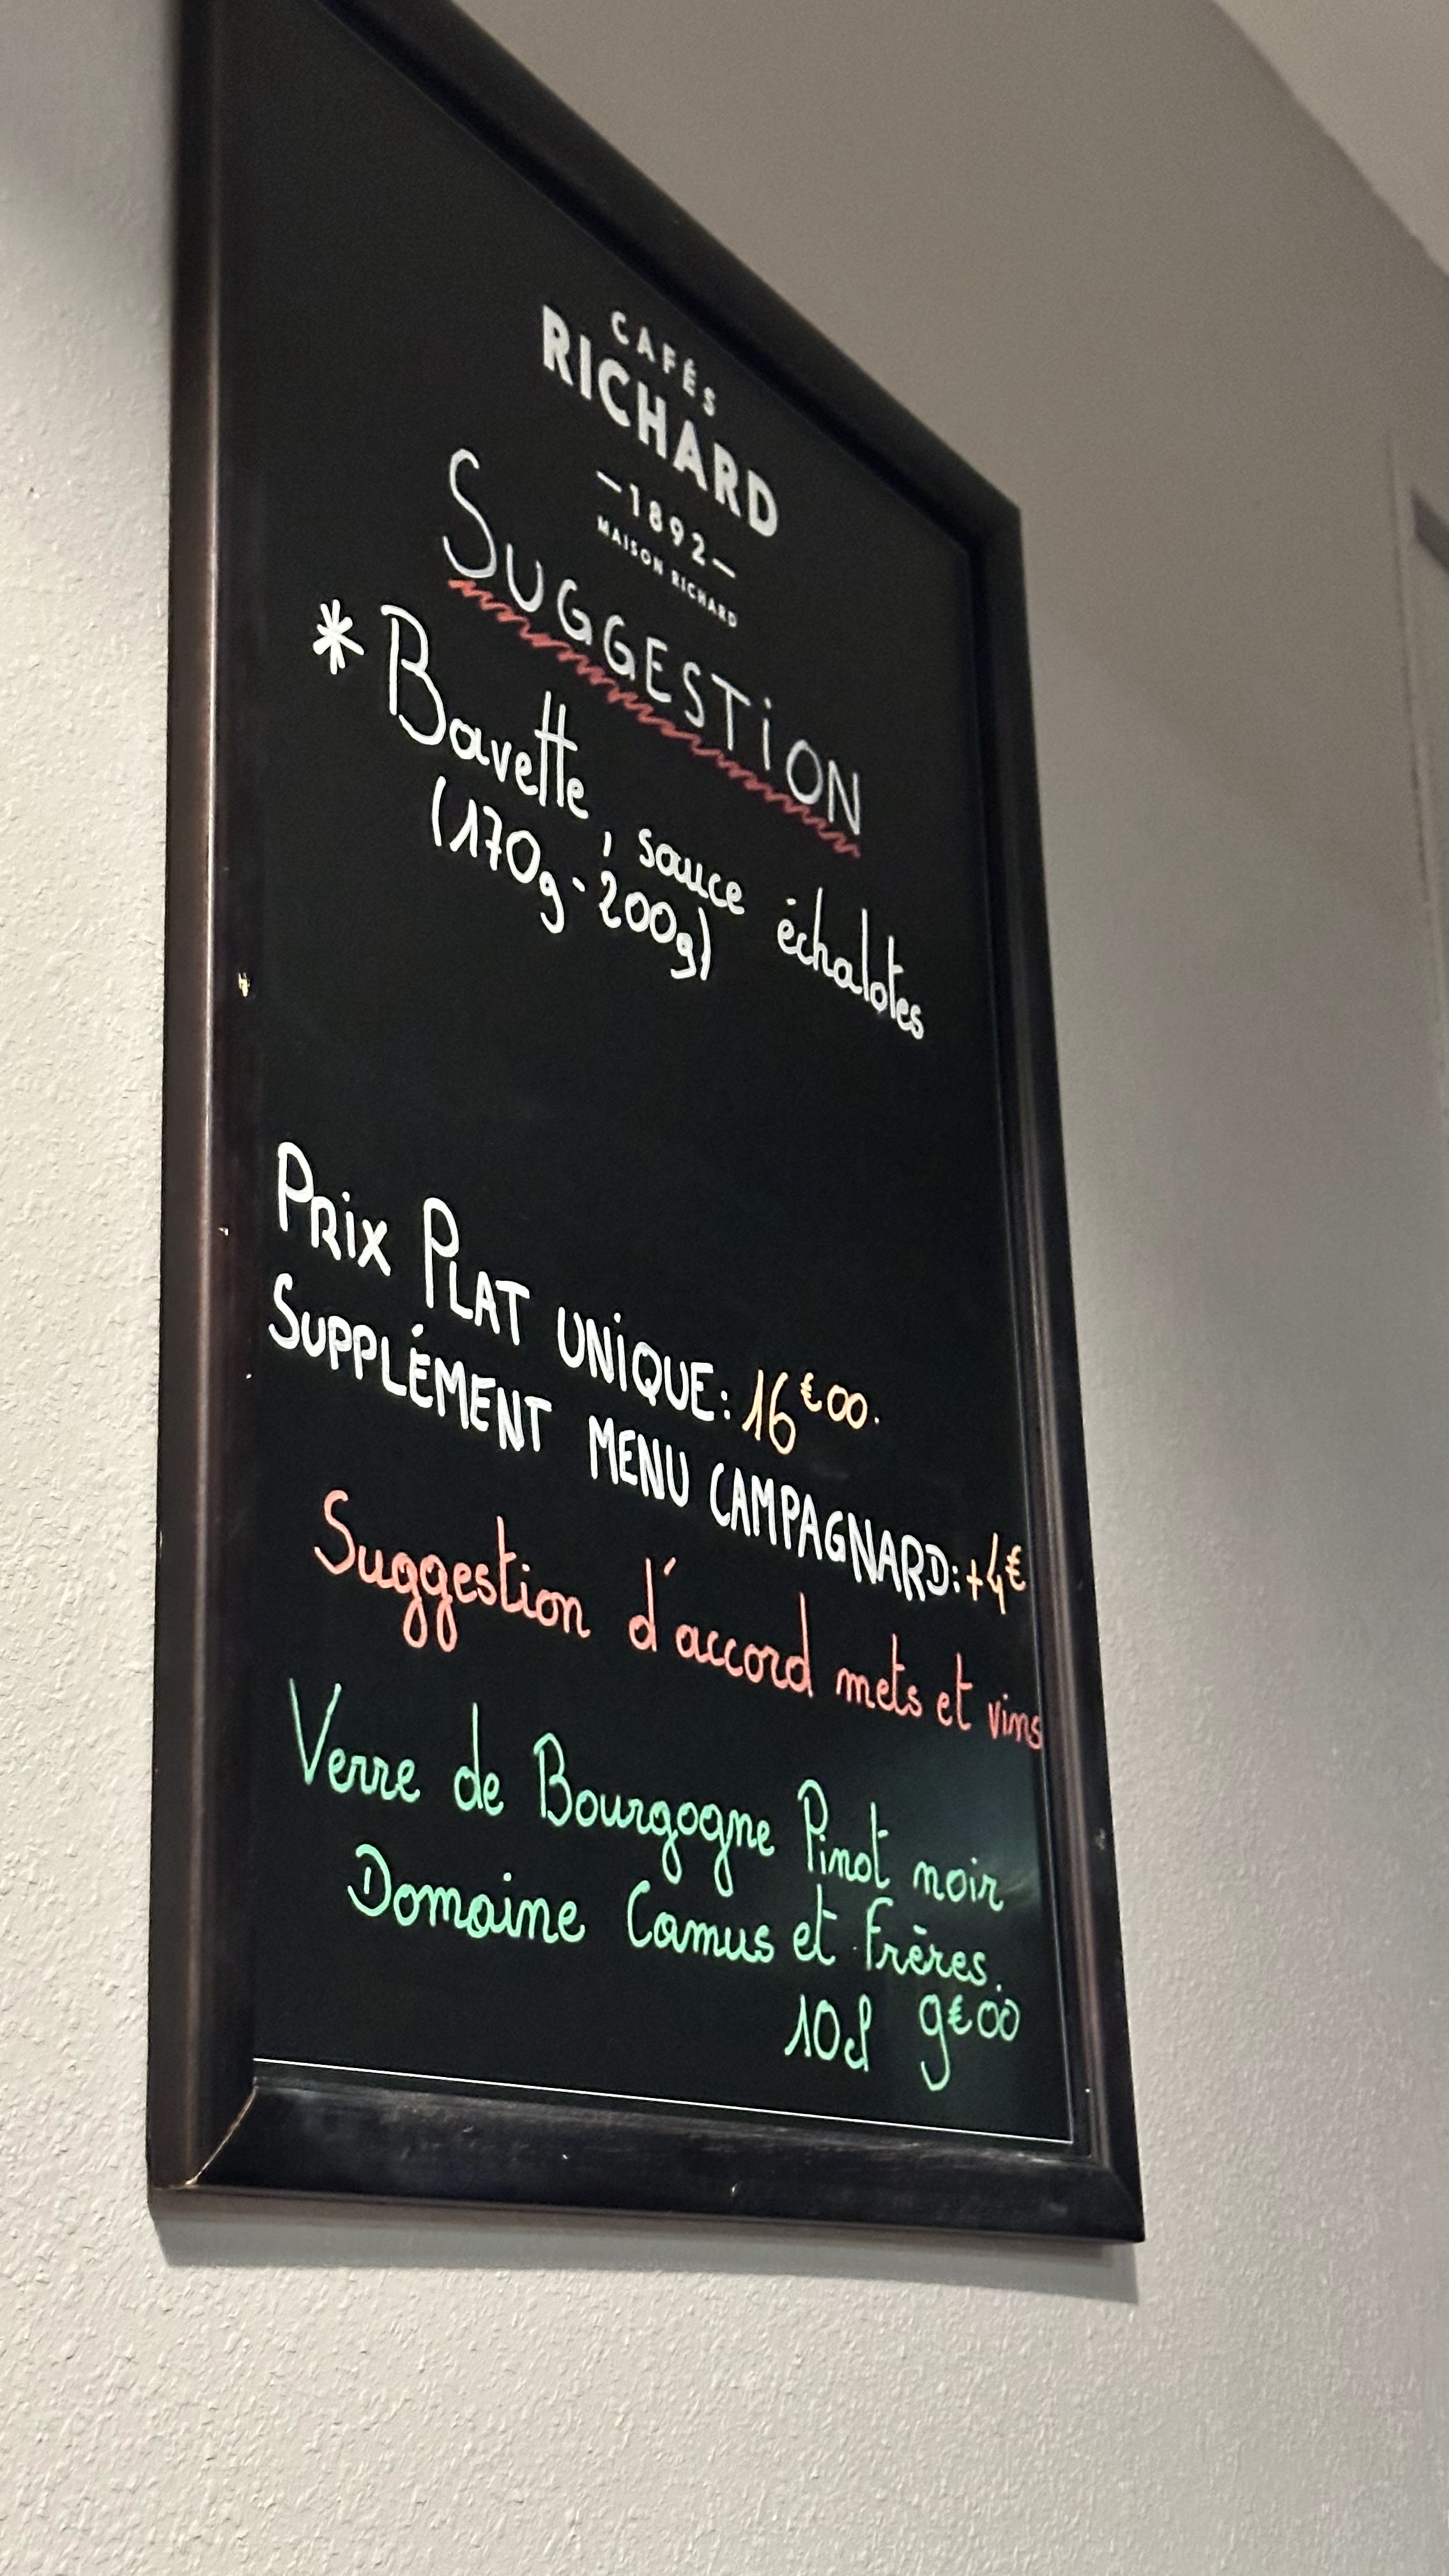 CAFÉS
RICHARD
-1892-
MAISON RICHARD
SUGGESTION
* Bavette, sauce échalotes
(170g-200g)
PRIX PLAT UNIQUE: 16€00.
SUPPLÉMENT MENU CAMPAGNARD: +4€
Suggestion d'accord mets et vins
Verre de Bourgogne Pinot noir
Domaine Camus et Frères.
10cl 9€00